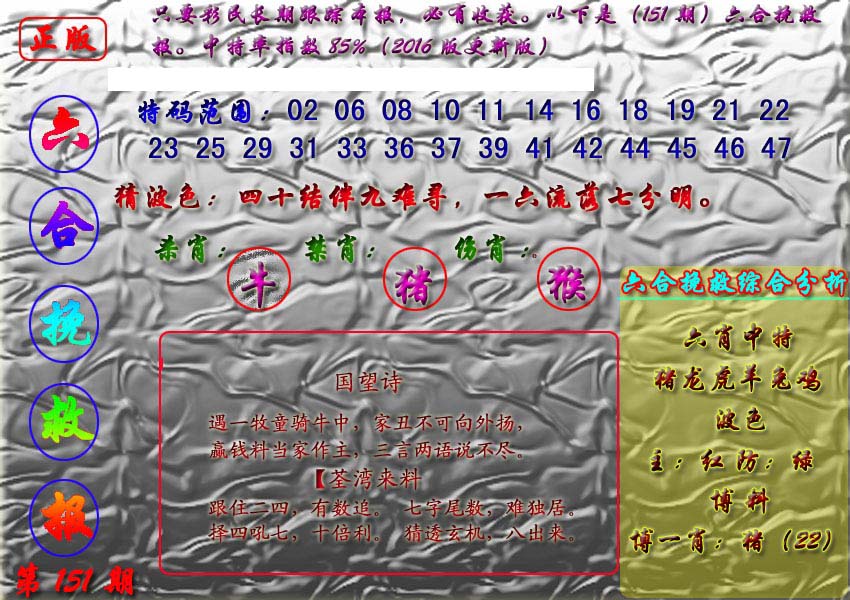 正版
只要彩民长期跟踪本报，必有收获。以下是（151 期）六合挽救
报。中特率指数 85%（2016 版更新版）
六合挽救报
特码范围：02 06 08 10 11 14 16 18 19 21 22
23 25 29 31 33 36 37 39 41 42 44 45 46 47
猜波色：四十结伴九难寻，一六流落七分明。
杀肖： 禁肖： 伤肖：。
牛 猪 猴
国望诗
遇一牧童骑牛中，家丑不可向外扬，
赢钱料当家作主，三言两语说不尽。
【荃湾来料
跟住二四，有数追。 七字尾数，难独居。
择四吼七，十倍利。 猜透玄机，八出来。
六合挽救综合分析
六肖中特
猪龙虎羊兔鸡
波色
主：红防：绿
博料
博一肖：猪（22）
第 151 期